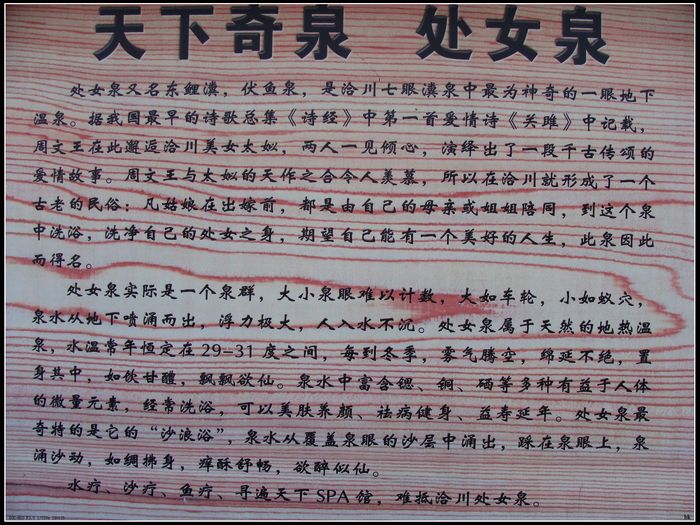 天下奇泉 处女泉
处女泉又名东鲤瀵，伏鱼泉，是洽川七眼瀵泉中最为神奇的一眼地下
温泉。据我国最早的诗歌总集《诗经》中第一首爱情诗《关雎》中记载，
周文王在此邂逅洽川美女太姒，两人一见倾心，演绎出了一段千古传颂的
爱情故事。周文王与太姒的天作之合令人羡慕，所以在洽川就形成了一个
古老的民俗：凡姑娘在出嫁前，都是由自己的母亲或姐姐陪同，到这个泉
中洗浴，洗净自己的处女之身，期望自己能有一个美好的人生，此泉因此
而得名。
处女泉实际是一个泉群，大小泉眼难以计数，大如车轮，小如蚁穴，
泉水从地下喷涌而出，浮力极大，人入水不沉。处女泉属于天然的地热温
泉，水温常年恒定在29-31度之间，每到冬季，雾气腾空，绵延不绝，置
身其中，如饮甘醴，飘飘欲仙。泉水中富含锶、铜、硒等多种有益于人体
的微量元素，经常洗浴，可以美肤养颜、祛病健身、益寿延年。处女泉最
奇特的是它的“沙浪浴”，泉水从覆盖泉眼的沙层中涌出，踩在泉眼上，泉
涌沙动，如绸拂身，痒酥舒畅，欲醉似仙。
水疗、沙疗、鱼疗、寻遍天下SPA馆，难抵洽川处女泉。